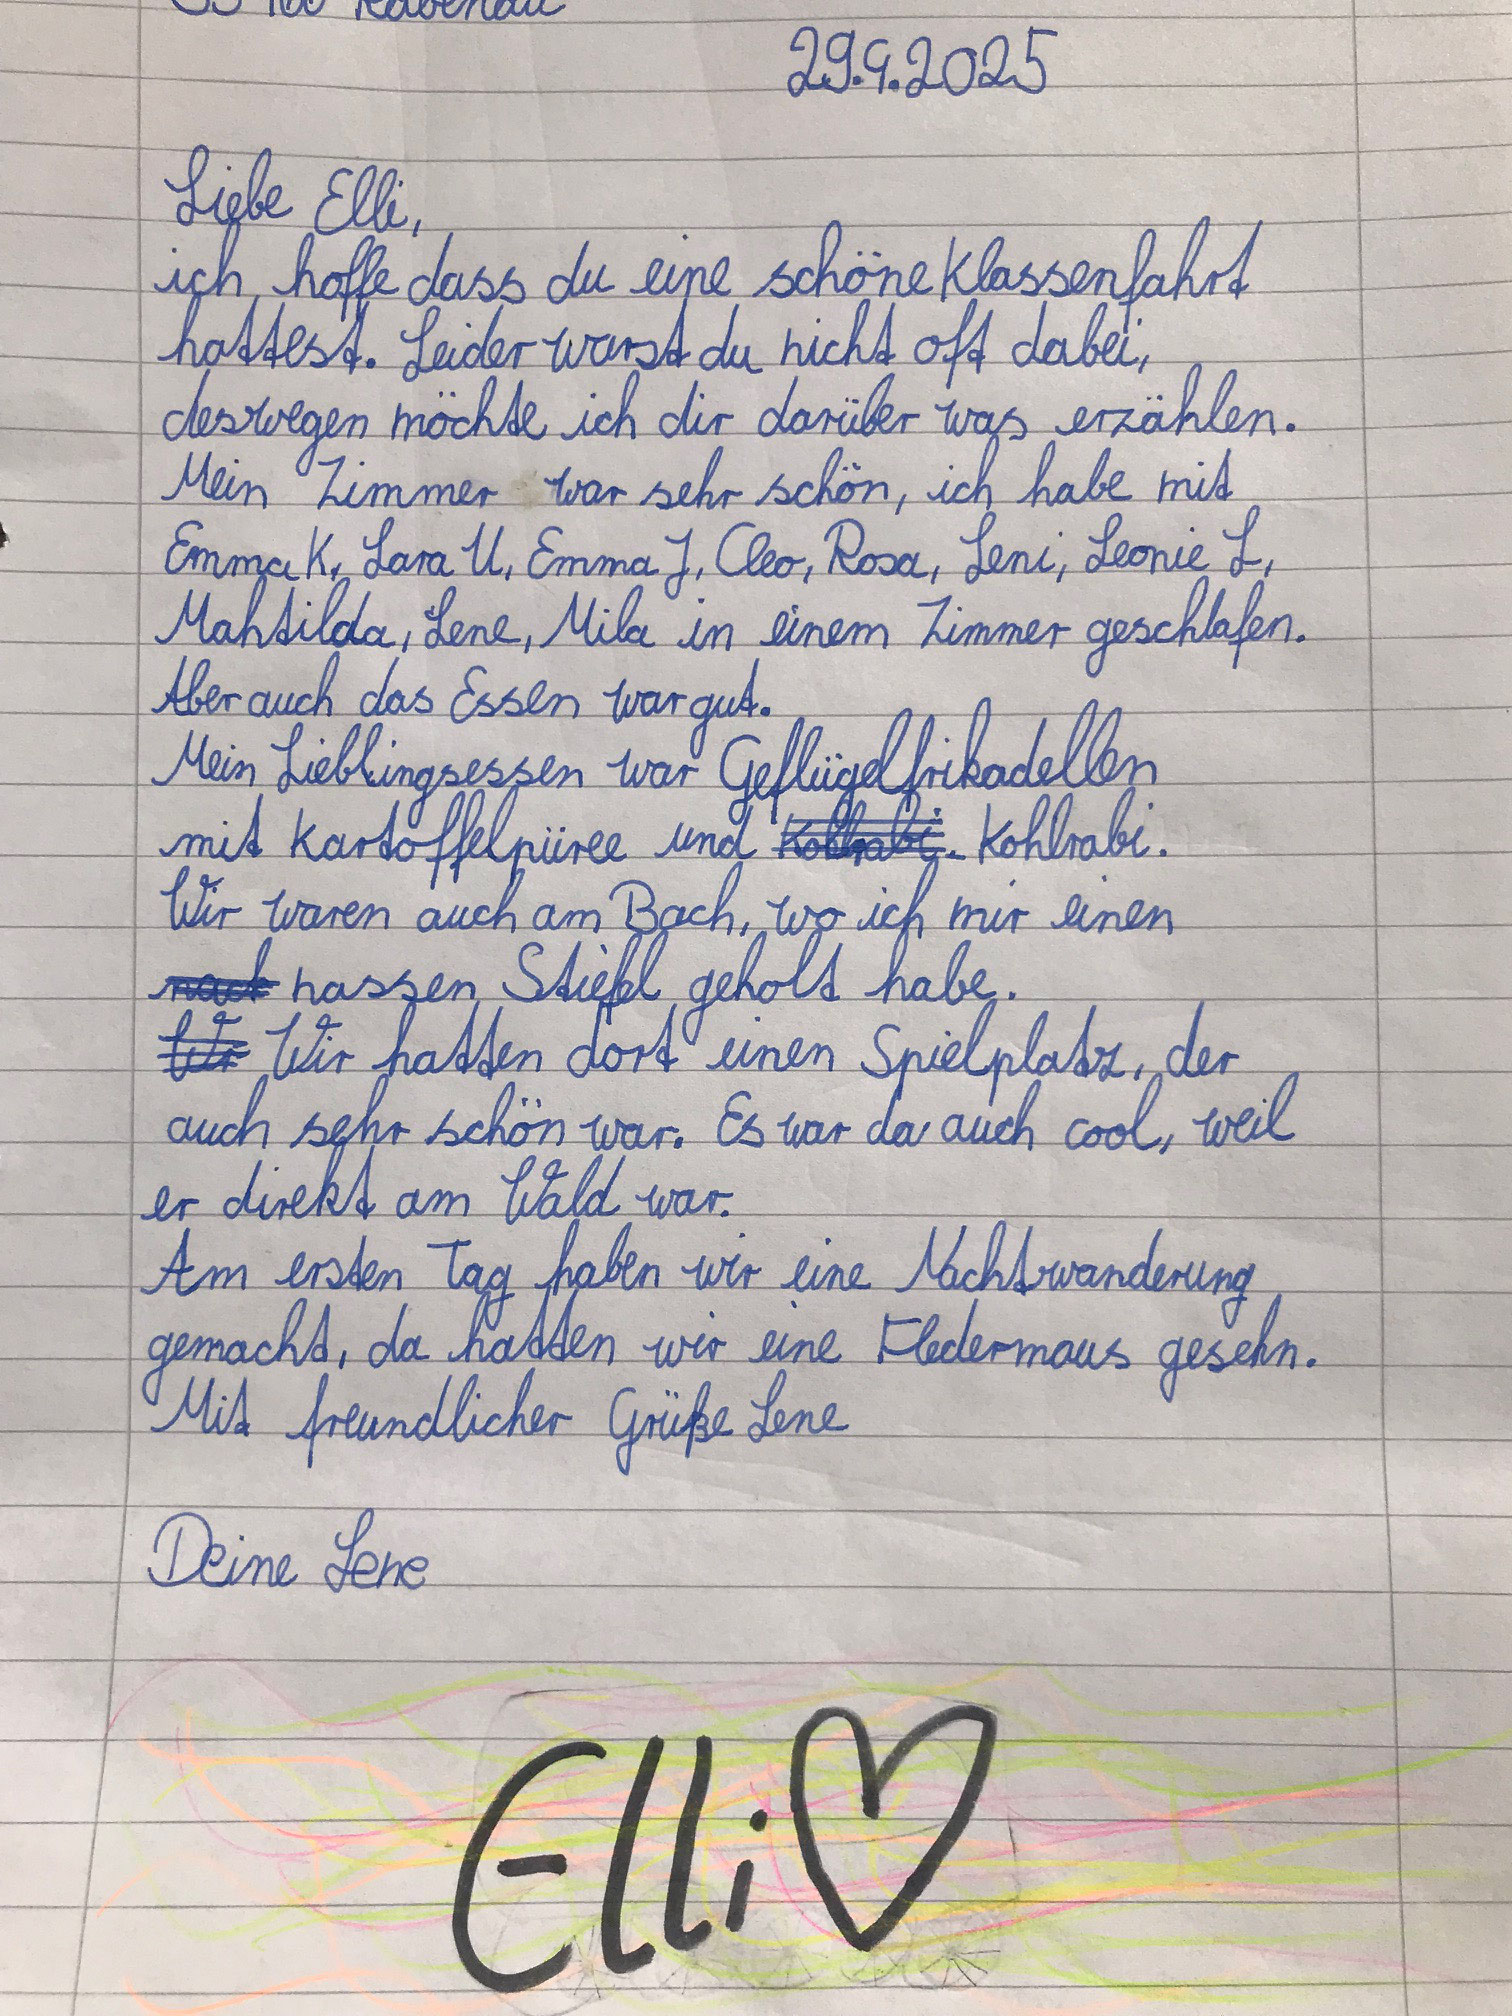 Rabenau
29.9.2025
Liebe Elli,
ich hoffe dass du eine schöne Klassenfahrt
hattest. Leider warst du nicht oft dabei,
deswegen möchte ich dir darüber was erzählen.
Mein Zimmer war sehr schön, ich habe mit
Emma K, Lara U, Emma J, Cleo, Rosa, Leni, Leonie L,
Mahtilda, Lene, Mila in einem Zimmer geschlafen.
Aber auch das Essen war gut.
Mein Lieblingsessen war Geflügelfrikadellen
mit Kartoffelpüree und Kohlrabi. Kohlrabi.
Wir waren auch am Bach, wo ich mir einen
nassen Stiefel geholt habe.
Wir Wir hatten dort einen Spielplatz, der
auch sehr schön war. Es war da auch cool, weil
er direkt am Wald war.
Am ersten Tag haben wir eine Nachtwanderung
gemacht, da hatten wir eine Fledermaus gesehn.
Mit freundlicher Grüße Lene
Deine Lene
Elli